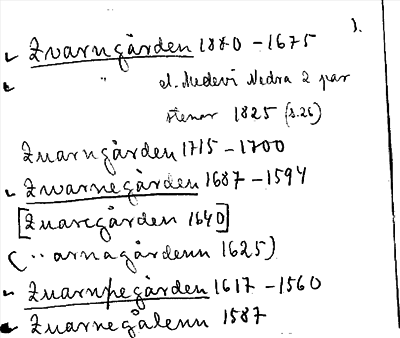 Zvarngården 1880 - 1675
" el. Medevi Nedra 2 par
stenar 1825 (s.26)
Zuarngården 1715 - 1700
Zwarnegården 1687 - 1594
[Zuarcgården 1640]
( " arnagårdenn 1625)
Zuarnpegården 1617 - 1560
Zuarnegålenn 1587